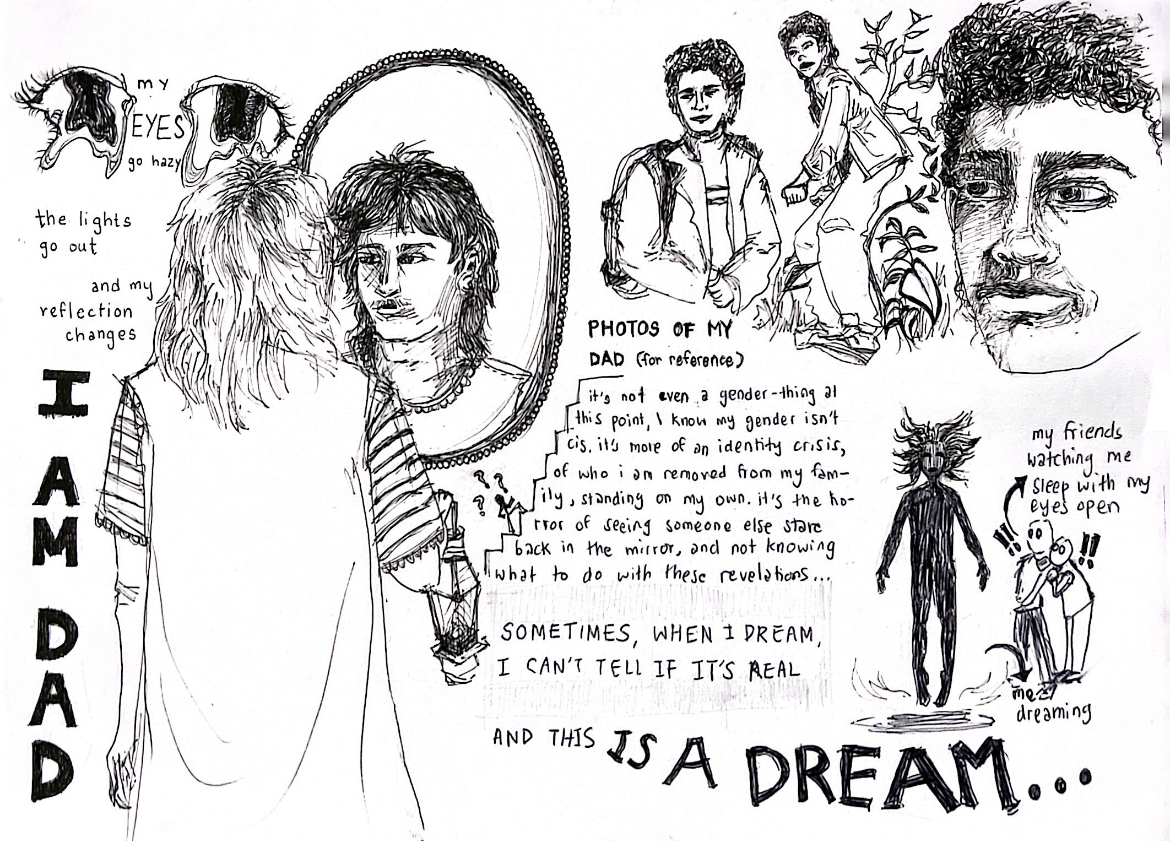 my
EYES
go hazy
the lights
go out
and my
reflection
changes
I
AM
DAD
PHOTOS OF MY
DAD (for reference)
it's not even a gender-thing at
this point, I know my gender isn't
cis. it's more of an identity crisis,
of who i am removed from my fam-
ily, standing on my own. it's the ho-
rror of seeing someone else stare
back in the mirror, and not knowing
what to do with these revelations...
? ? ? ?
SOMETIMES, WHEN I DREAM,
I CAN'T TELL IF IT'S REAL
AND THIS IS A DREAM...
my friends
watching me
sleep with my
eyes open
!! !!
me
dreaming